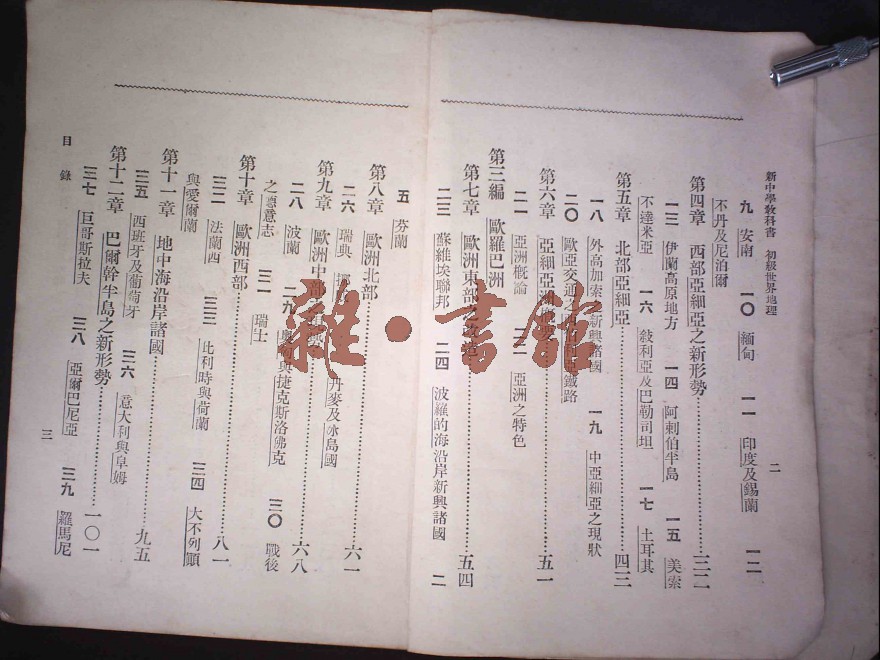 新中學教科書 初級世界地理 二
九 安南 一〇 緬甸 一一 印度及錫蘭 一二
不丹及尼泊爾
第四章 西部亞細亞之新形勢 三二
一三 伊蘭高原地方 一四 阿剌伯半島 一五 美索
不達米亞 一六 敍利亞及巴勒司坦 一七 土耳其
第五章 北部亞細亞 四三
一八 外高加索新興諸國 一九 中亞細亞之現狀
二〇 歐亞交通之 鐵路
第六章 亞細亞 五一
二一 亞洲概論 二二 亞洲之特色
第三編 歐羅巴洲
第七章 歐洲東部 五四
二三 蘇維埃聯邦 二四 波羅的海沿岸新興諸國 二
五 芬蘭
第八章 歐洲北部 六一
二六 瑞典 丹麥及冰島國
第九章 歐洲中部 六八
二八 波蘭 二九 奧 與捷克斯洛佛克 三〇 戰後
之德意志 三一 瑞士
第十章 歐洲西部 八一
三二 法蘭西 三三 比利時與荷蘭 三四 大不列顚
與愛爾蘭
第十一章 地中海沿岸諸國 九五
三五 西班牙及葡萄牙 三六 意大利與阜姆
第十二章 巴爾幹半島之新形勢 一〇一
三七 巨哥斯拉夫 三八 亞爾巴尼亞 三九 羅馬尼
目錄 三
雜·書館